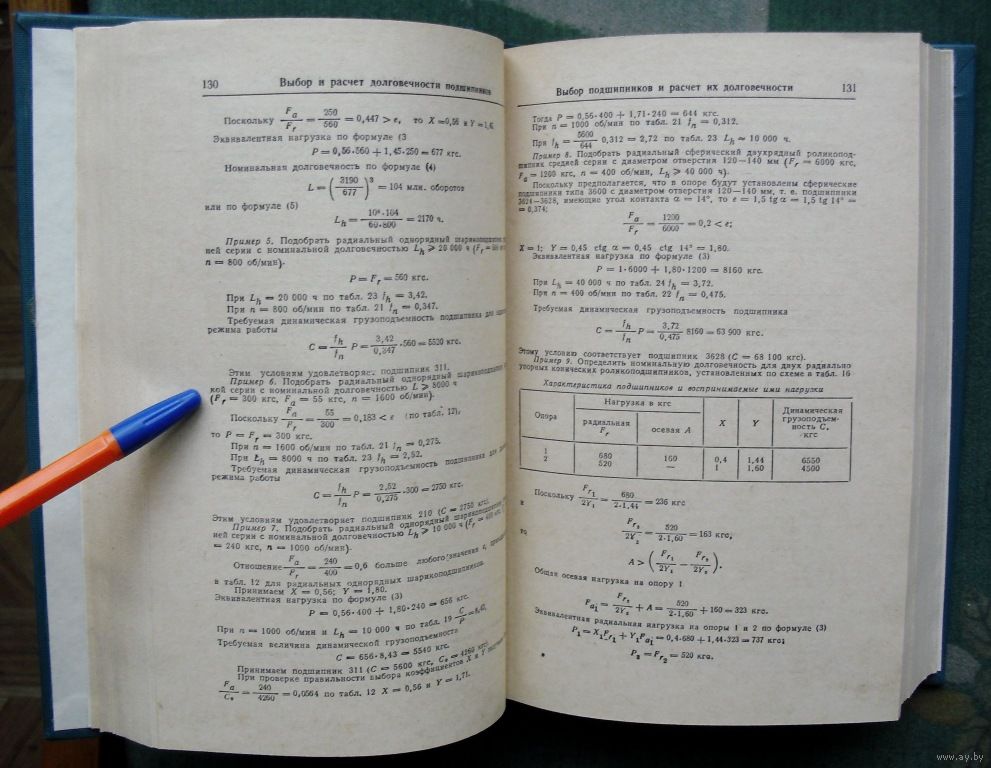 130 Выбор и расчет долговечности подшипников
Поскольку Fa/Fr = 250/560 = 0,447 > e, то X = 0,56 и Y = 1,45
Эквивалентная нагрузка по формуле (3
P = 0,56·560 + 1,45·250 = 677 кгс.
Номинальная долговечность по формуле (4)
L = (3190/677)³ = 104 млн. оборотов
или по формуле (5)
Lh = 10⁶·104/60·800 = 2170 ч.
Пример 5. Подобрать радиальный однорядный шарикоподшипник
ней серии с номинальной долговечностью Lh ⩾ 20 000 ч (Fr = 560
n = 800 об/мин).
P = Fr = 560 кгс.
При Lh = 20 000 ч по табл. 23 fh = 3,42.
При n = 800 об/мин по табл. 21 fn = 0,347.
Требуемая динамическая грузоподъемность подшипника для
режима работы
C = fh/fn P = 3,42/0,347 ·560 = 5520 кгс.
Этим условиям удовлетворяет подшипник 311.
Пример 6. Подобрать радиальный однорядный шарикоподшипник
кой серии с номинальной долговечностью L ⩾ 8000 ч
(Fr = 300 кгс, Fa = 55 кгс, n = 1600 об/мин).
Поскольку Fa/Fr = 55/300 = 0,183 < e (по табл. 12),
то P = Fr = 300 кгс.
При n = 1600 об/мин по табл. 21 fn = 0,275.
При Lh = 8000 ч по табл. 23 fh = 2,52.
Требуемая динамическая грузоподъемность подшипника для
режима работы
C = fh/fn P = 2,52/0,275 ·300 = 2750 кгс.
Этим условиям удовлетворяет подшипник 210 (C = 2750 кгс).
Пример 7. Подобрать радиальный однорядный шарикоподшипник
ней серии с номинальной долговечностью Lh ⩾ 10 000 ч (Fr = 400 кгс,
= 240 кгс, n = 1000 об/мин).
Отношение Fa/Fr = 240/400 = 0,6 больше любого значения e,
в табл. 12 для радиальных однорядных шарикоподшипников.
Принимаем X = 0,56; Y = 1,80.
Эквивалентная нагрузка по формуле (3)
P = 0,56·400 + 1,80·240 = 656 кгс.
При n = 1000 об/мин и Lh = 10 000 ч по табл. 19 C/P = 8,43,
Требуемая величина динамической грузоподъемности
C = 656·8,43 = 5540 кгс.
Принимаем подшипник 311 (C = 5600 кгс, C₀ = 4260 кгс).
При проверке правильности выбора коэффициентов X и Y
Fa/C₀ = 240/4260 = 0,0564 по табл. 12 X = 0,56 и Y = 1,71.
Выбор подшипников и расчет их долговечности 131
Тогда P = 0,56·400 + 1,71·240 = 644 кгс.
При n = 1000 об/мин по табл. 21 fn = 0,312.
При fh = 5600/644 0,312 = 2,72 по табл. 23 Lh ≈ 10 000 ч.
Пример 8. Подобрать радиальный сферический двухрядный роликопод-
шипник средней серии с диаметром отверстия 120—140 мм (Fr = 6000 кгс,
Fa = 1200 кгс, n = 400 об/мин, Lh ⩾ 40 000 ч).
Поскольку предполагается, что в опоре будут установлены сферические
подшипники типа 3600 с диаметром отверстия 120—140 мм, т. е. подшипники
3624—3628, имеющие угол контакта α = 14°, то e = 1,5 tg α = 1,5 tg 14° =
= 0,374;
Fa/Fr = 1200/6000 = 0,2 < e;
X = 1; Y = 0,45 ctg α = 0,45 ctg 14° = 1,80.
Эквивалентная нагрузка по формуле (3)
P = 1·6000 + 1,80·1200 = 8160 кгс.
При Lh = 40 000 ч по табл. 24 fh = 3,72.
При n = 400 об/мин по табл. 22 fn = 0,475.
Требуемая динамическая грузоподъемность подшипника
C = fh/fn P = 3,72/0,475 8160 = 63 900 кгс.
Этому условию соответствует подшипник 3628 (C = 68 100 кгс).
Пример 9. Определить номинальную долговечность для двух радиально
упорных конических роликоподшипников, установленных по схеме в табл. 16
Характеристика подшипников и воспринимаемые ими нагрузки
Опора Нагрузка в кгс X Y Динамическая грузоподъем-ность C, кгс
радиальная Fr осевая A
1 680 160 0,4 1,44 6550
2 520 — 1 1,60 4500
Поскольку Fr₁/2Y₁ = 680/2·1,44 = 236 кгс
и
Fr₂/2Y₂ = 520/2·1,60 = 163 кгс,
то
A > (Fr₁/2Y₁ − Fr₂/2Y₂).
Общая осевая нагрузка на опору 1
Fa₁ = Fr₂/2Y₂ + A = 520/2·1,60 + 160 = 323 кгс.
Эквивалентная радиальная нагрузка на опоры 1 и 2 по формуле (3)
P₁ = X₁Fr₁ + Y₁Fa₁ = 0,4·680 + 1,44·323 = 737 кгс;
P₂ = Fr₂ = 520 кгс.
www.ay.by